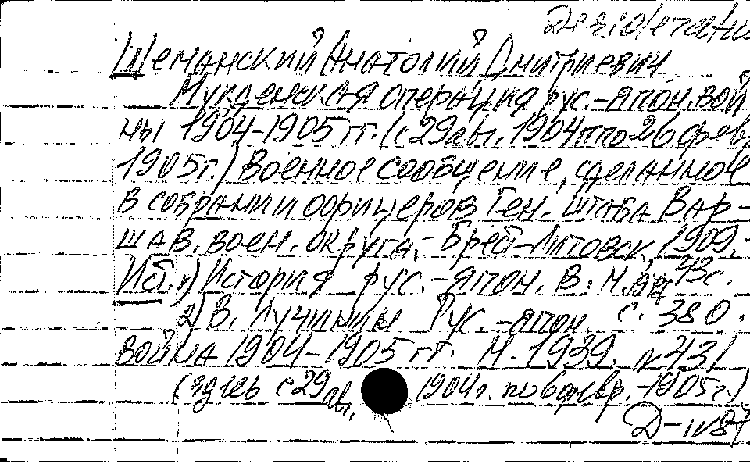 Desiderata
Шеманский Анатолий Дмитриевич
Мукденская операция рус.-япон. вой
ны 1904-1905 гг. (с 29 авг. 1904 по 26 февр.
1905г.) Военное сообщение, сделанное
в собрании офицеров Ген. штаба Вар-
шав. воен. округа.- Брест-Литовск, 1909.-
Ист. 1) История рус.-япон. в. М.
2) В. Лучинин Рус.-япон. с. 380.
война 1904-1905 гг. М. 1939. №431
(здесь с 29 авг. 1904г. по 6 февр.-1905г.)